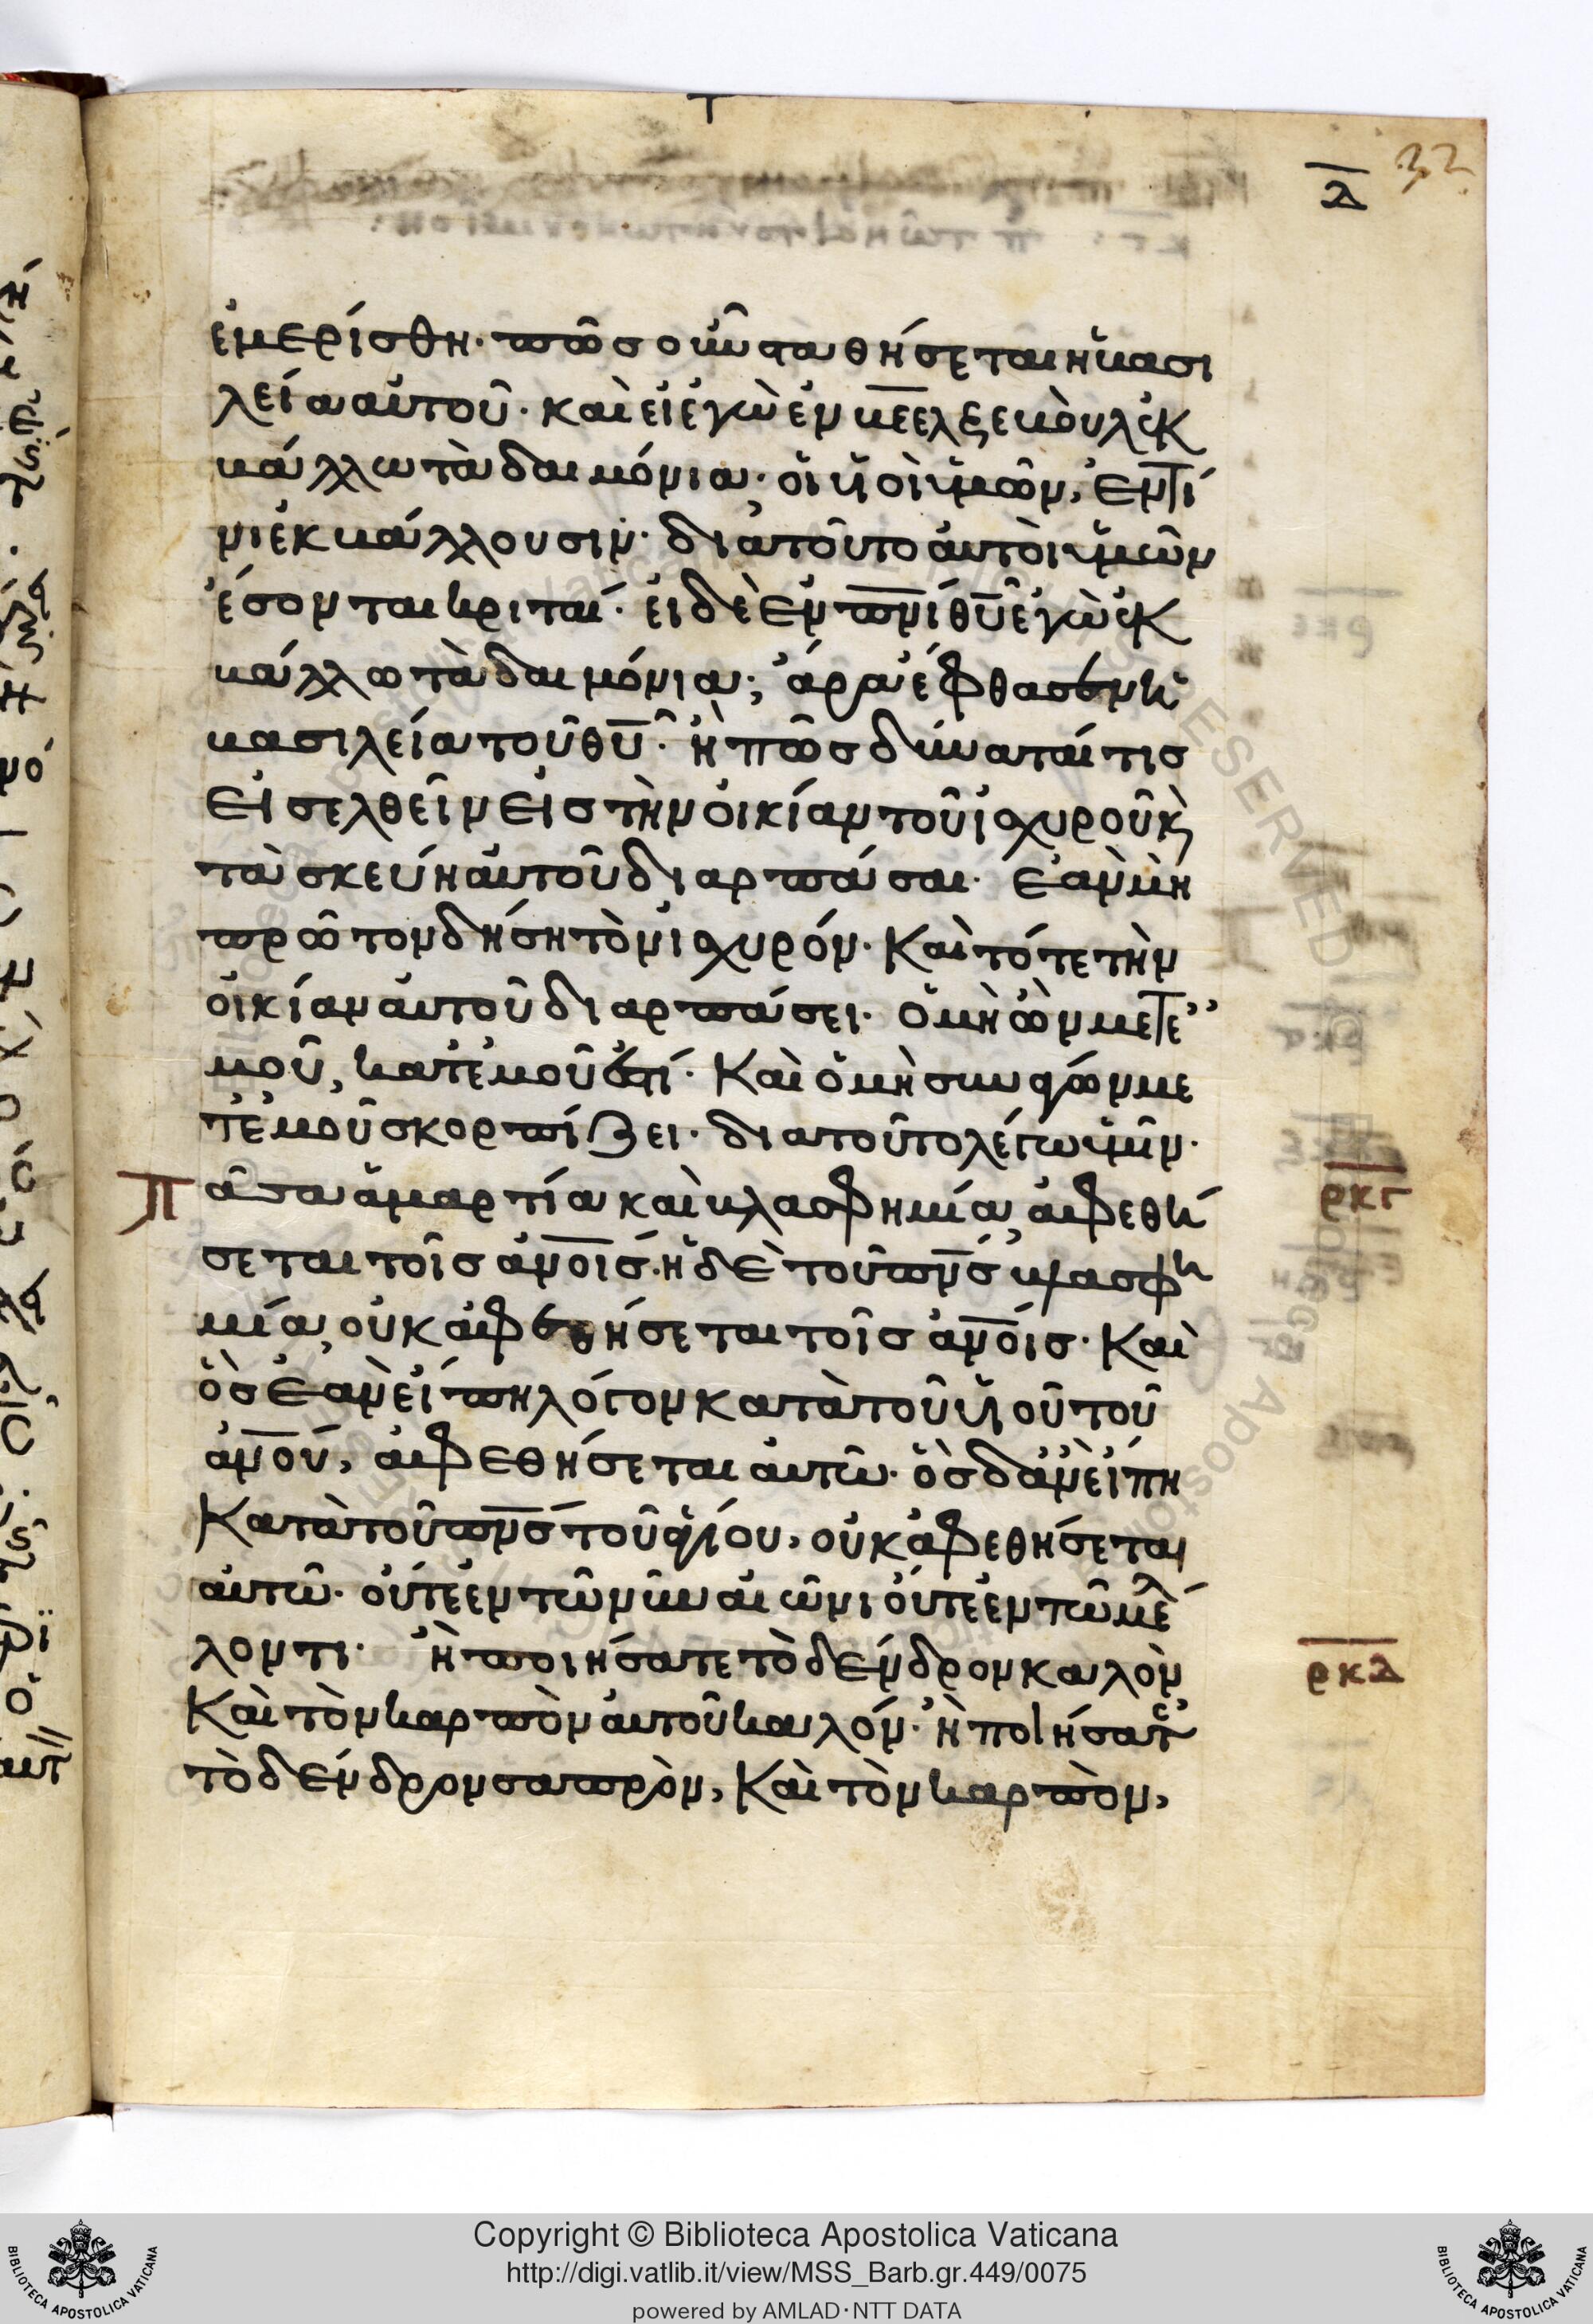 32
λ
ἐμερίσθη· πῶς οὖν σταθήσεται ἡ βασι
λεία αὐτοῦ· καὶ εἰ ἐγὼ ἐν βεελζεβοὺλ ἐκ
βάλλω τὰ δαιμόνια· οἱ υἱοὶ ὑμῶν, ἐν τί
νι ἐκβάλλουσιν· διατοῦτο αὐτοὶ ὑμῶν
ἔσονται κριταί· εἰ δὲ ἐν πνι θυ ἐγὼ ἐκ
βάλλω τὰ δαιμόνια· ἄρα ἔφθασεν ἡ
βασιλεία τοῦ θυ· ἢ πῶς δύναταί τις
εἰσελθεῖν εἰς τὴν οἰκίαν τοῦ ἰσχυροῦ κ
τὰ σκεύη αὐτοῦ διαρπάσαι· ἐὰν μὴ
πρῶτον δήσῃ τὸν ἰσχυρόν· καὶ τότε τὴν
οἰκίαν αὐτοῦ διαρπάσει· ὁ μὴ ὢν μετ ἐ
μοῦ, κατ ἐμοῦ ἐστί· καὶ ὁ μὴ συνάγων με
τ ἐμοῦ σκορπίζει· διατοῦτο λέγω ὑμῖν·
πᾶσα ἁμαρτία καὶ βλασφημία ἀφεθή
ρκγ
σεται τοῖς ανοις· ἡ δὲ τοῦ πνς βλασφη
μία, οὐκ ἀφεθήσεται τοῖς ανοις· καὶ
ὃς ἐὰν εἴπῃ λόγον κατὰ τοῦ υἱοῦ τοῦ
ανου, ἀφεθήσεται αὐτῶ· ὃς δ ἂν εἴπη
κατὰ τοῦ πνς τοῦ ἁγίου, οὐκ ἀφεθήσεται
αὐτῶ· οὔτε ἐν τῶ νῦν αἰῶνι οὔτε ἐν τῶ μέλ
λοντι· ἢ ποιήσατε τὸ δένδρον καλὸν
ρκδ
καὶ τὸν καρπὸν αὐτοῦ καλόν· ἢ ποιήσατε
τὸ δένδρον σαπρὸν, καὶ τὸν καρπὸν,
Copyright © Biblioteca Apostolica Vaticana
http://digi.vatlib.it/view/MSS_Barb.gr.449/0075
powered by AMLAD·NTT DATA
BIBLIOTECA APOSTOLICA VATICANA
BIBLIOTECA APOSTOLICA VATICANA